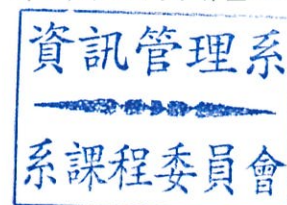 資訊管理系
系課程委員會